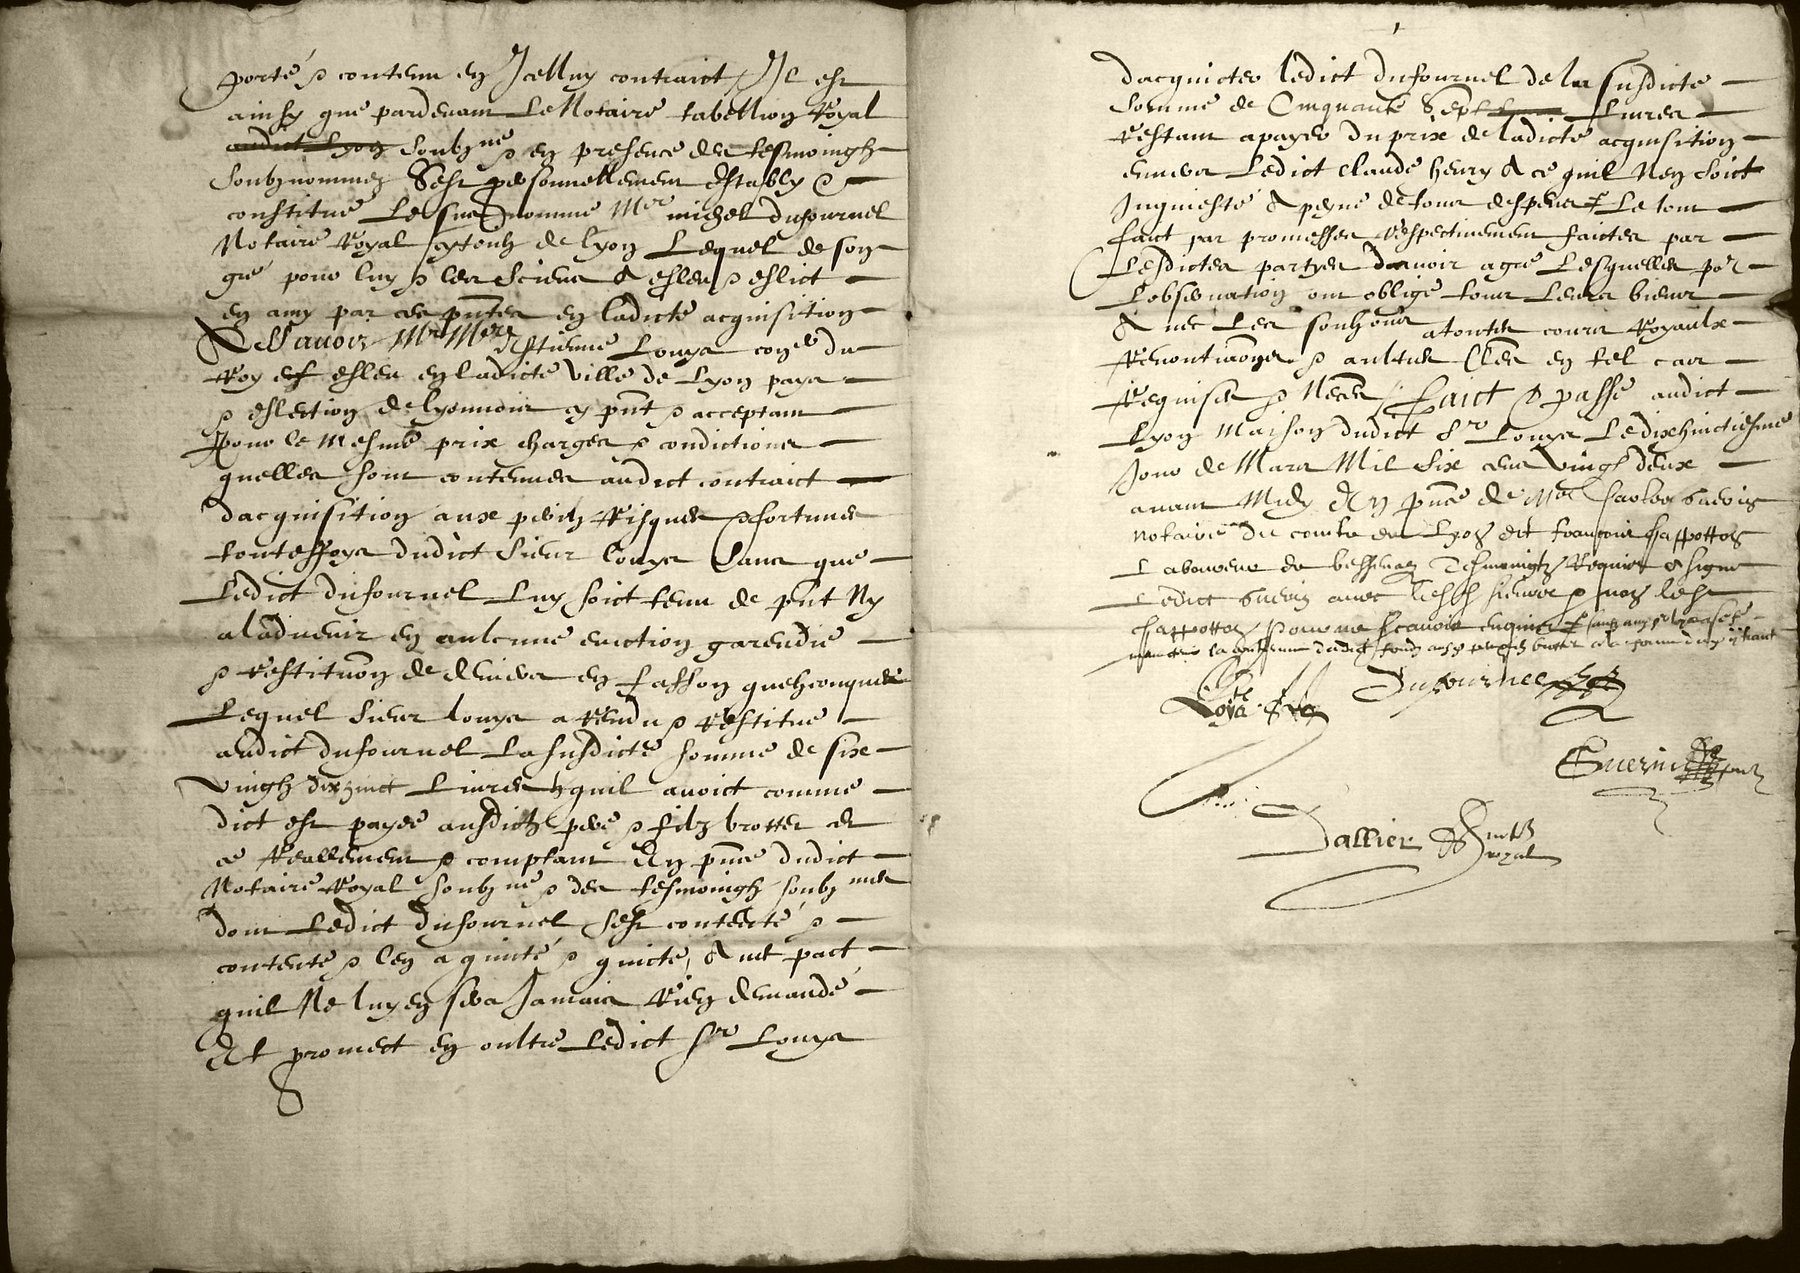 porté & contenu en Icelluy contraict Il est
ainsy que pardevant Le Notaire tabellion Royal
audict Lyon soubzne & en presence des tesmoingz
soubznommez Sest personnellement estably &
constitué Le susnommé Mre michel dufournel
Notaire Royal de lyon Lequel de son
gré pour luy & les siens A esleu & eslict
en amy par ces pntes en ladicte acquisition
A Scavoir Mr Mre Estienne Louys coner du
Roy esleu en ladicte ville de Lyon pays
& eslection de lyonnois cy pnt & acceptant
pour le mesme prix charges & condictions
quelles sont contenues audict contraict
dacquisition aux perilz Risques & fortunes
touteffoys dudict sieur Louys sans que
Ledict dufournel Luy soict tenu de pnt Ny
aladvenir en aulcune eviction garendie
& restituon de deniers en fasson quelzconques
Lequel sieur louys a rendu & restitué
audict dufournel La susdicte somme de six
vingtz dix huict Livres quil avoict comme
dict est payée ausdictz pere & filz brottet et
ce Reallement & comptant En pnce dudict
Notaire Royal soubzne & des tesmoingz soubznes
dont Ledict dufournel sest contenté &
contente & len a quicté & quicte, Avec pact
quil Ne luy en sera Jamais Rien demandé
Et promect en oultre Ledict Sr Louys
dacquicter ledict dufournel de la susdicte
somme de Cinquante Sept Livres
restant a payer du prix de ladicte acquisition
envers Ledict claude henry & ce quil Nen soict
Inquiesté A peyne de tous despens Le tout
faict par promesses respectivement faictes par
Lesdictes partyes davoir agré Lesquelles por
Lobservation ont obligé tous Leurs biens
Avec Les soubzmons a toutes cours Royaulx
Renontiaons & aultres Cles en tel cas
Requises & Necesres Faict & passé audict
Lyon Maison dudict Sr Louys Le dixhuictiesme
Jour de Mars Mil six cens vingt deux
avant Midy En pnce de Mre Guerin
notaire du comté de Lyon et françois Chappotton
Laboureur de bessenay Tesmoingz Requis & signé
Ledict Guerin avec lesd sieurs & non lest
Chappotton pour ne scavoir enquis
Loys
Dufournel
Guerin
Dallier notre royal